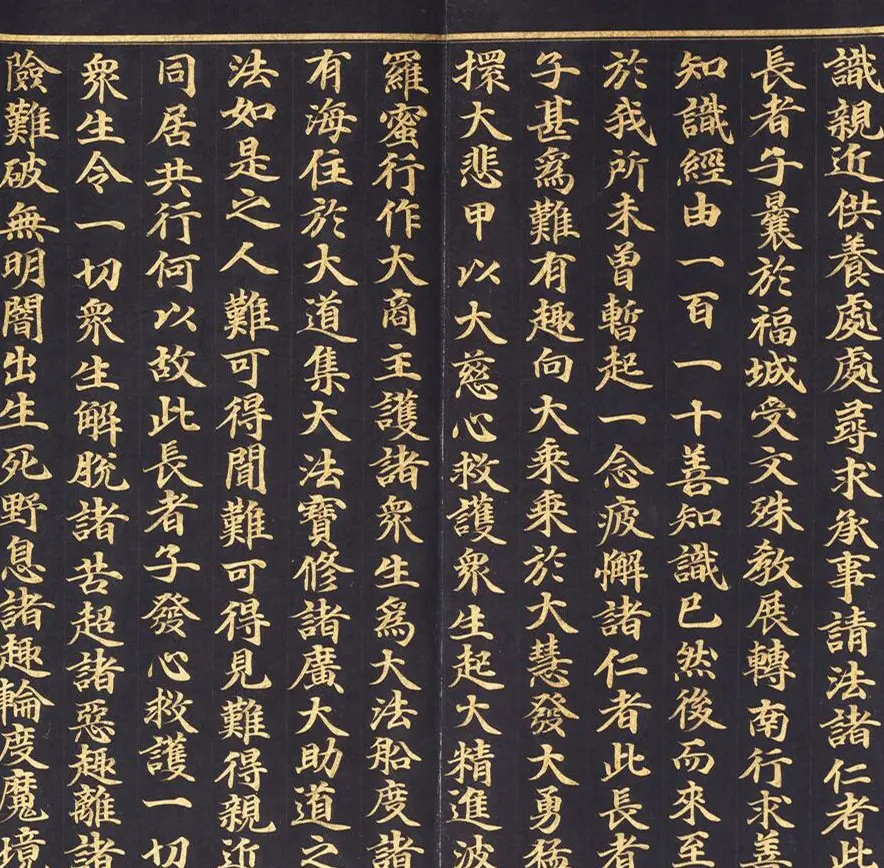 識親近供養處處尋求承事請法諸仁者此
長者子曩於福城受文殊教展轉南行求善
知識經由一百一十善知識已然後而來至
於我所未曾暫起一念疲懈諸仁者此長者
子甚爲難有趣向大乘乘於大慧發大勇猛
擐大悲甲以大慈心救護衆生起大精進波
羅蜜行作大商主護諸衆生爲大法船度諸
有海住於大道集大法寶修諸廣大助道之
法如是之人難可得聞難可得見難得親近
同居共行何以故此長者子發心救護一切
衆生令一切衆生解脫諸苦超諸惡趣離諸
險難破無明闇出生死野息諸趣輪度魔境